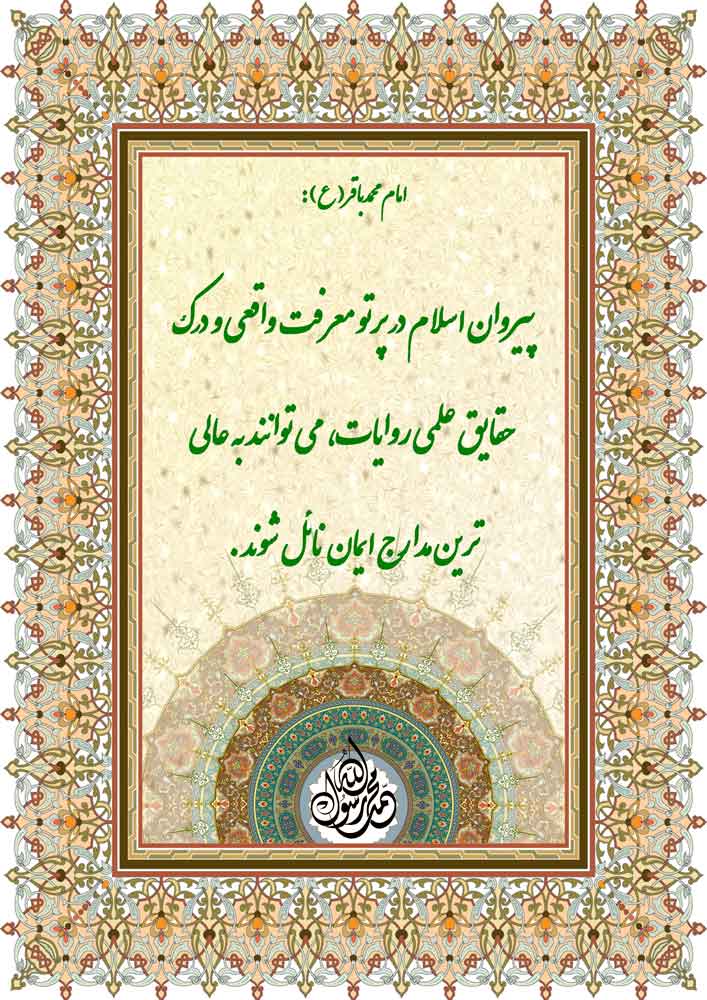 امام محمدباقر(ع):
پیروان اسلام در پرتو معرفت واقعی و درک
حقایق علمی روایات، می توانند به عالی
ترین مدارج ایمان نائل شوند.
محمد رسول الله